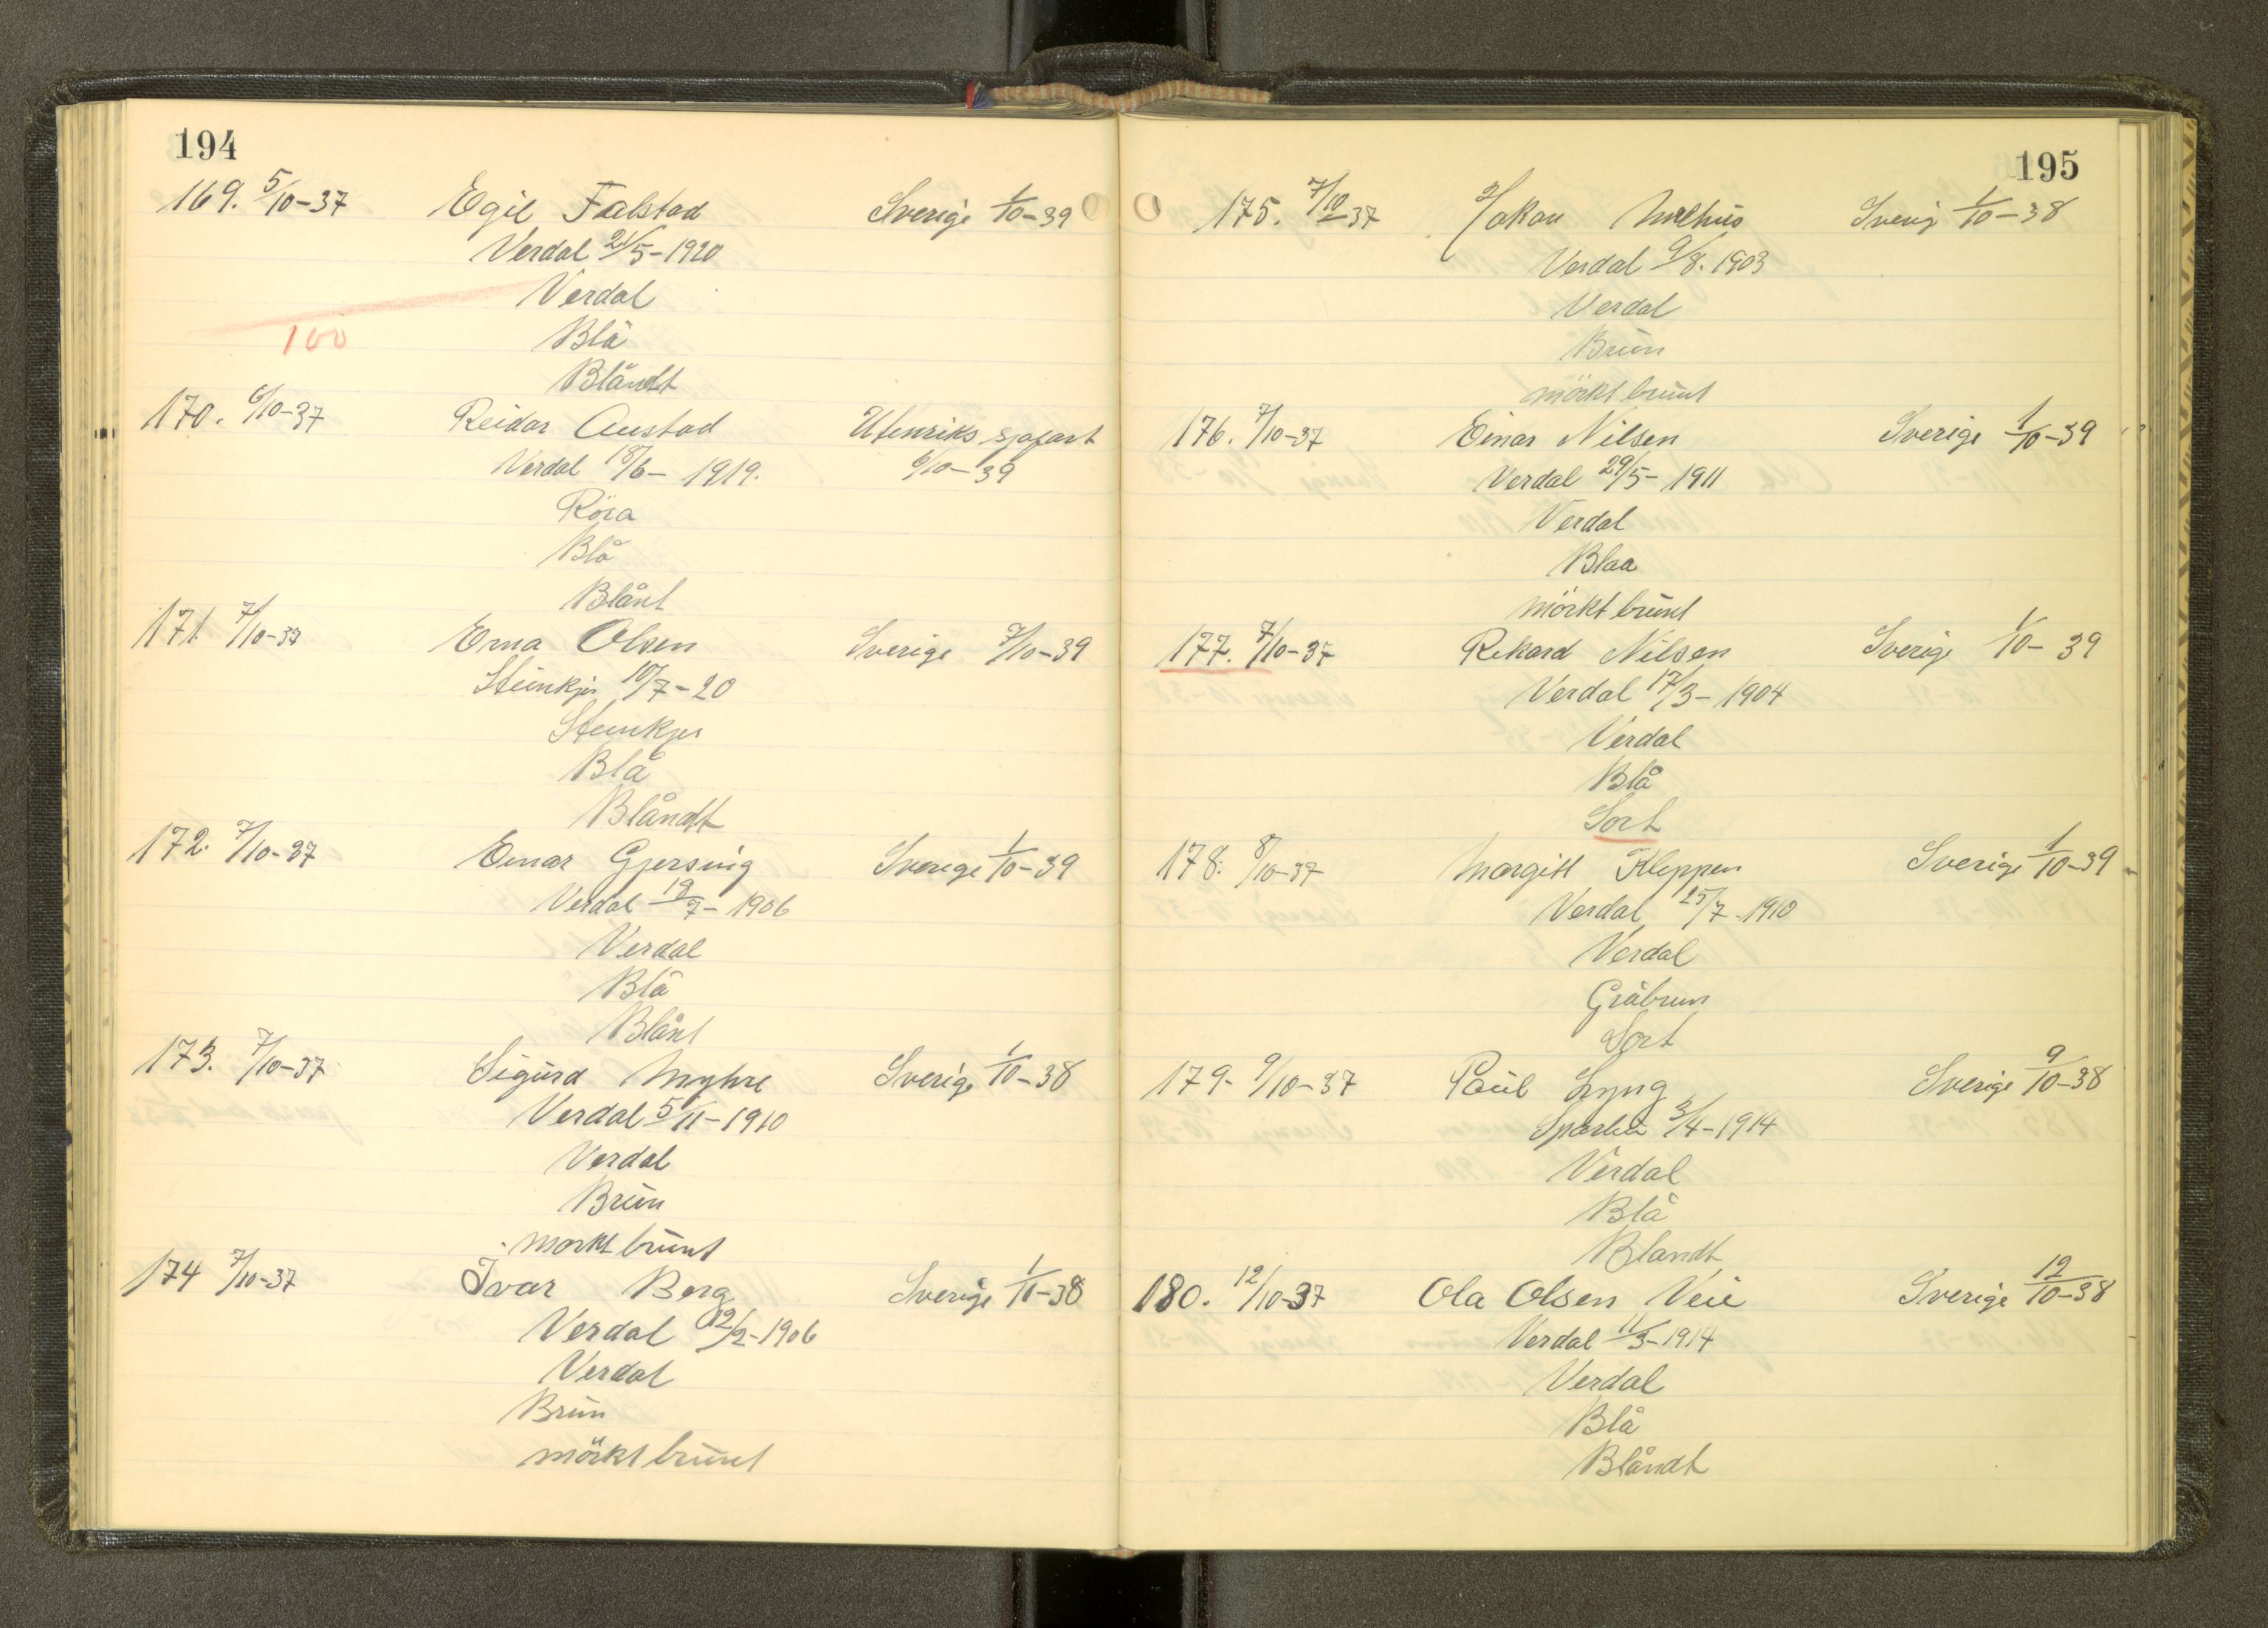 194
169. 5/10-37 Egil Falstad Sverige 1/10-39
Verdal 21/5-1920
Verdal
100
Blå
Blåndt
170. 6/10-37 Reidar Austad Utenriks sjøfart
Verdal 18/6- 1919. 6/10-39
Röra
Blå
Blånt
171. 7/10-37 Erna Olsen Sverige 7/10-39
Steinkjer 10/7-20
Steinkjer
Blå
Blåndt
172. 7/10-37 Einar Gjersing Sverige 1/10-39
Verdal 19/7- 1906
Verdal
Blå
Blånt
173. 7/10-37 Sigurd Myhre Sverige 1/10-38
Verdal 5/11-1910
Verdal
Brun
morkt brunt
174 7/10-37 Ivar Berg Sverige 1/11-38
Verdal 12/2-1906
Verdal
Brun
mörkt brunt
195
175. 7/10-37 Hakon Melhus Sverig 1/10-38
Verdal 9/8. 1903
Verdal
Brun
mörkt brunt
176. 7/10-37 Einar Nilsen Sverige 1/10-39
Verdal 29/5- 1911
Verdal
Blaa
mörkt brunt
177. 7/10-37 Rikard Nilsen Sverige 1/10- 39
Verdal 17/3- 1904
Verdal
Blå
Sort
178. 8/10-37 Margitt Kleppen Sverige 1/10-39
Verdal 25/7-1910
Verdal
Gråbrun
Sort
179. 9/10-37 Paul Lyng Sverige 9/10-38
Sparbu 3/4-1914
Verdal
Blå
Blandt
180. 12/10-37 Ola Olsen Veie Sverige 12/10-38
Verdal 11/3-1914
Verdal
Blå
Blåndt